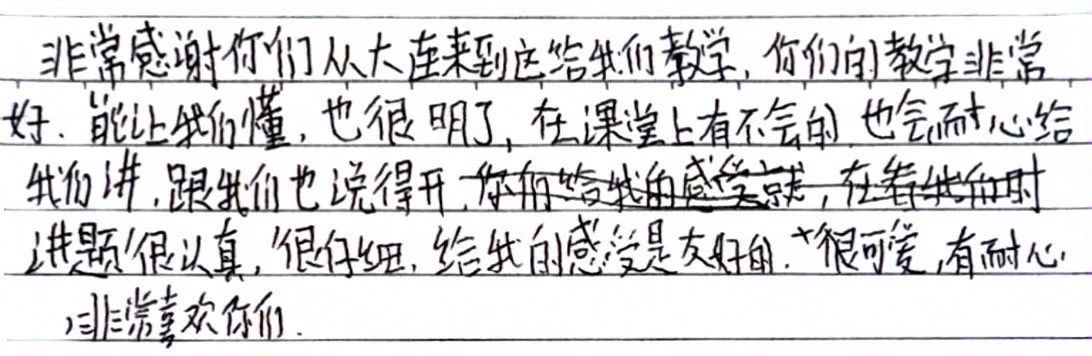 非常感谢你们从大连来到这给我们教学，你们的教学非常
好．能让我们懂，也很明了，在课堂上有不会的 也会耐心给
我们讲．跟我们也说得开，你们给我的感受就，在看我们时
讲题很认真，很仔细．给我的感受是友好的．很可爱，有耐心．
非常喜欢你们．